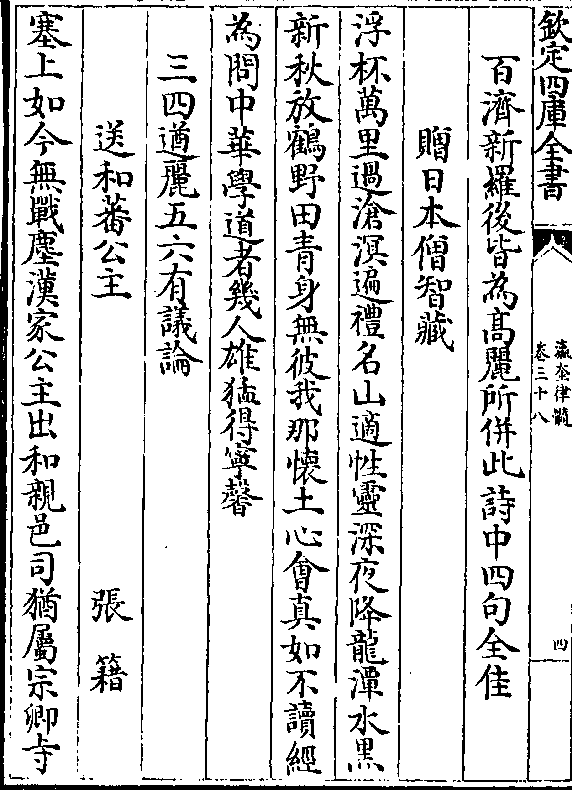 欽定四庫全書
瀛奎律髓
卷三十八
四
百濟新羅後皆為高麗所併此詩中四句全佳
贈日本僧智藏
浮杯萬里過滄溟遍禮名山適性靈深夜降龍潭水黒
新秋放鶴野田青身無彼我那懷土心會真如不讀經
為問中華學道者幾人雄猛得寧馨
三四遒麗五六有議論
送和蕃公主 張籍
塞上如今無戰塵漢家公主出和親邑司猶屬宗卿寺